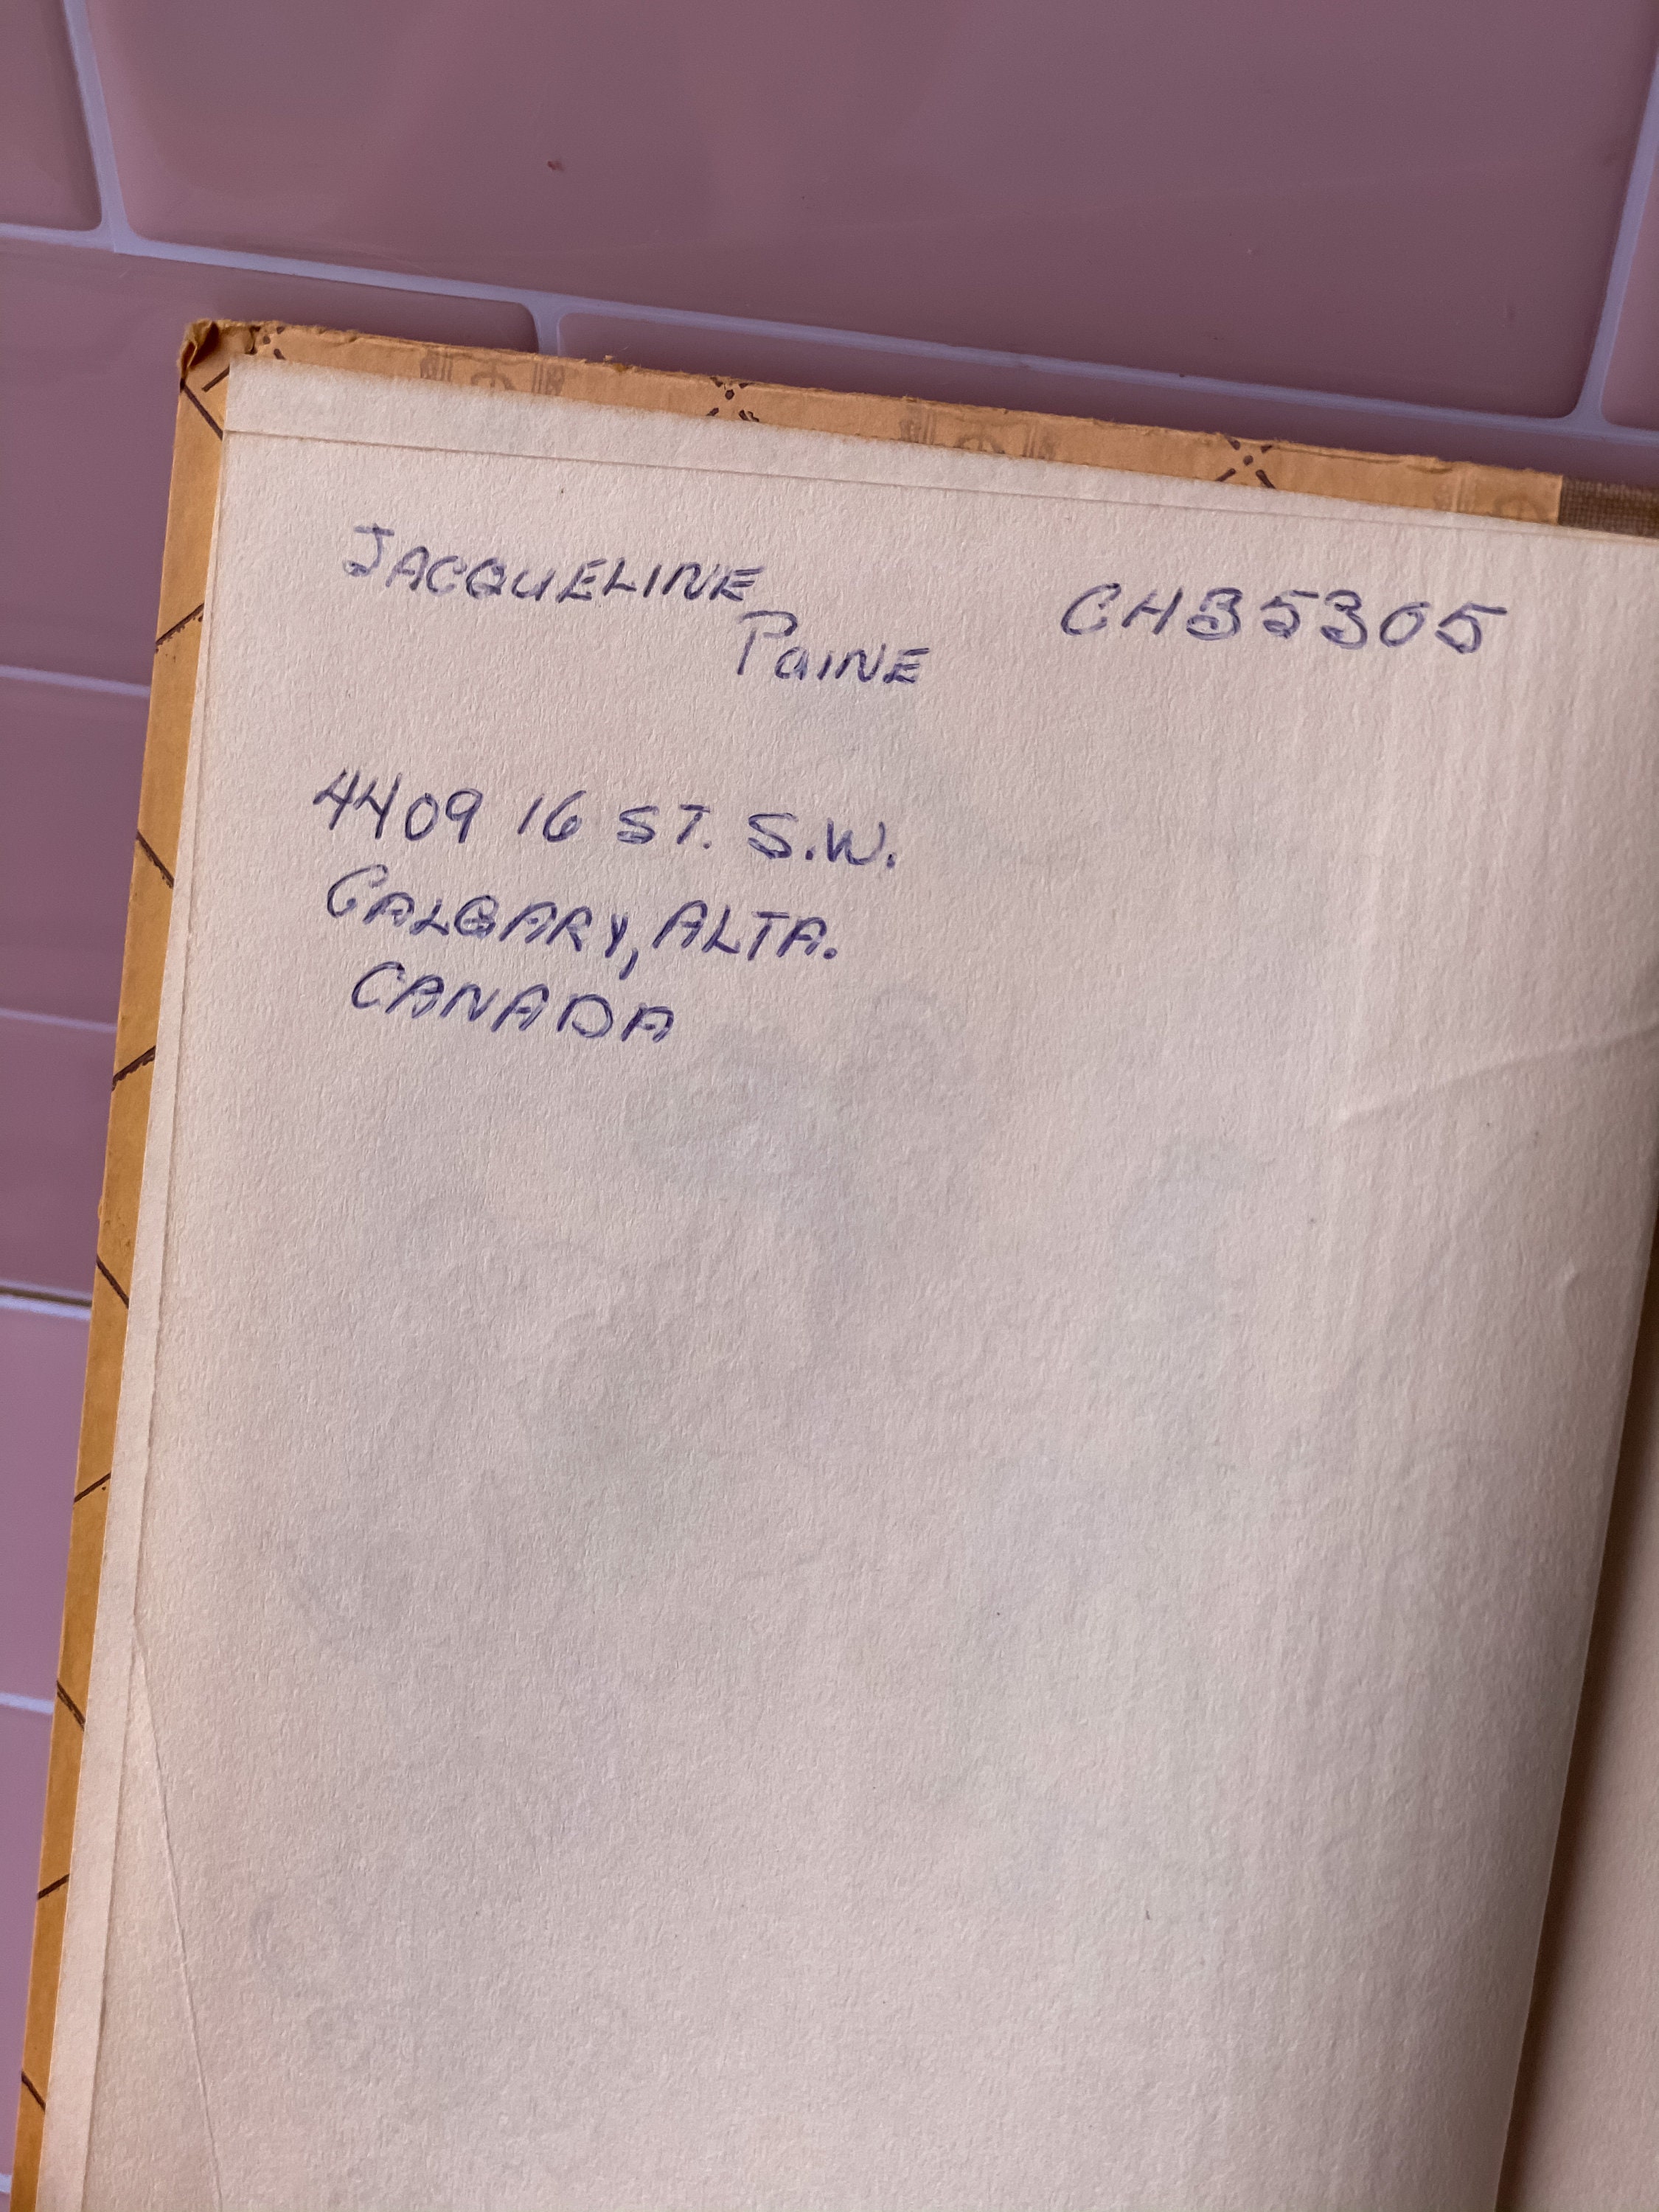 JACQUELINE
PaINE
CH35305
4409 16 ST. S.W.
CALGARY, ALTA.
CANADA